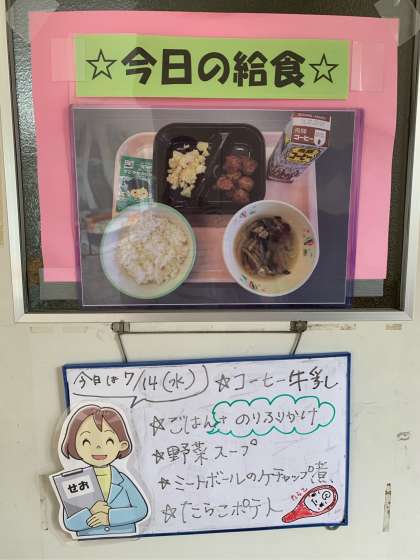 ☆今日の給食☆
飛騨
コーヒー
今日は7/14(水)
☆コーヒー牛乳
☆ごはん+のりふりかけ
☆野菜スープ
☆ミートボールのケチャップ煮
☆たらこポテト
たらこ
せお